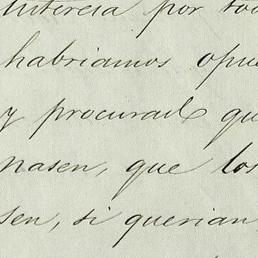 interesa por tod
habriamos opue
y procurad qu
nasen, que los
sen, si querian